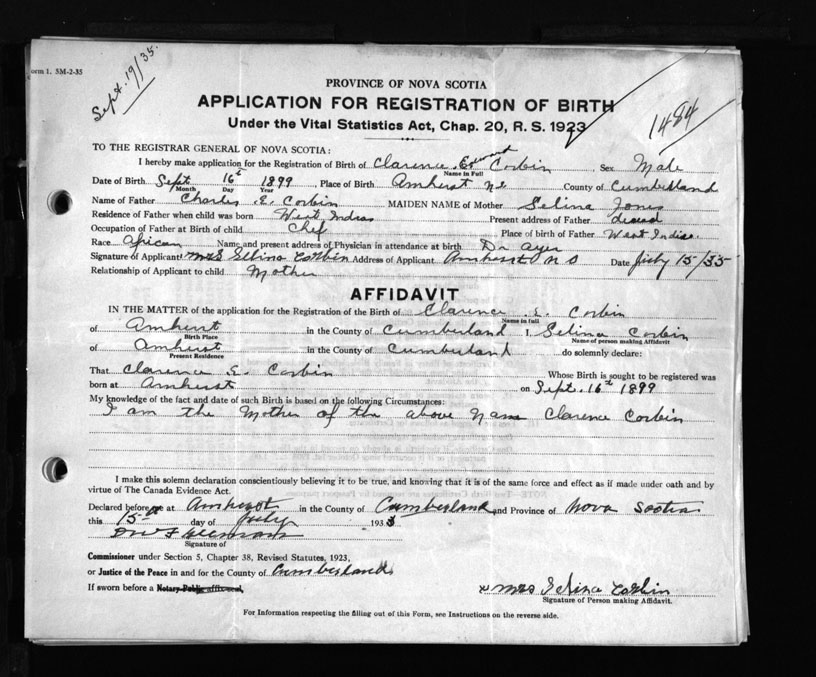 Form 1. 5M-2-35
Sept. 19/35.
PROVINCE OF NOVA SCOTIA
APPLICATION FOR REGISTRATION OF BIRTH
Under the Vital Statistics Act, Chap. 20, R. S. 1923
1484
TO THE REGISTRAR GENERAL OF NOVA SCOTIA:
I hereby make application for the Registration of Birth of Clarence Edward Corbin Sex Male
Name in Full
Date of Birth Sept 16th 1899, Place of Birth Amherst N.S. County of Cumberland
Month Day Year
Name of Father Charles E. Corbin MAIDEN NAME of Mother Selina Jones
Residence of Father when child was born West Indies Present address of Father dead
Occupation of Father at Birth of child Chef Place of birth of Father West Indies.
Race African Name and present address of Physician in attendance at birth Dr Ayer
Signature of Applicant Mrs Selina Corbin Address of Applicant Amherst N S Date July 15/35
Relationship of Applicant to child Mother
AFFIDAVIT
IN THE MATTER of the application for the Registration of the Birth of Clarence E. Corbin
Name in full
of Amherst in the County of Cumberland I, Selina Corbin
Birth Place Name of person making Affidavit
of Amherst in the County of Cumberland do solemnly declare:
Present Residence
That Clarence E. Corbin Whose Birth is sought to be registered was
born at Amherst on Sept. 16th 1899
My knowledge of the fact and date of such Birth is based on the following Circumstances:
I am the Mother of the above Name Clarence Corbin
I make this solemn declaration conscientiously believing it to be true, and knowing that it is of the same force and effect as if made under oath and by
virtue of The Canada Evidence Act.
Declared before me at Amherst in the County of Cumberland and Province of Nova Scotia
this 15th day of July 1935
Signature of
Commissioner under Section 5, Chapter 38, Revised Statutes, 1923,
or Justice of the Peace in and for the County of Cumberland
If sworn before a Notary Public affix seal,
Mrs Selina Corbin
Signature of Person making Affidavit.
For Information respecting the filling out of this Form, see Instructions on the reverse side.